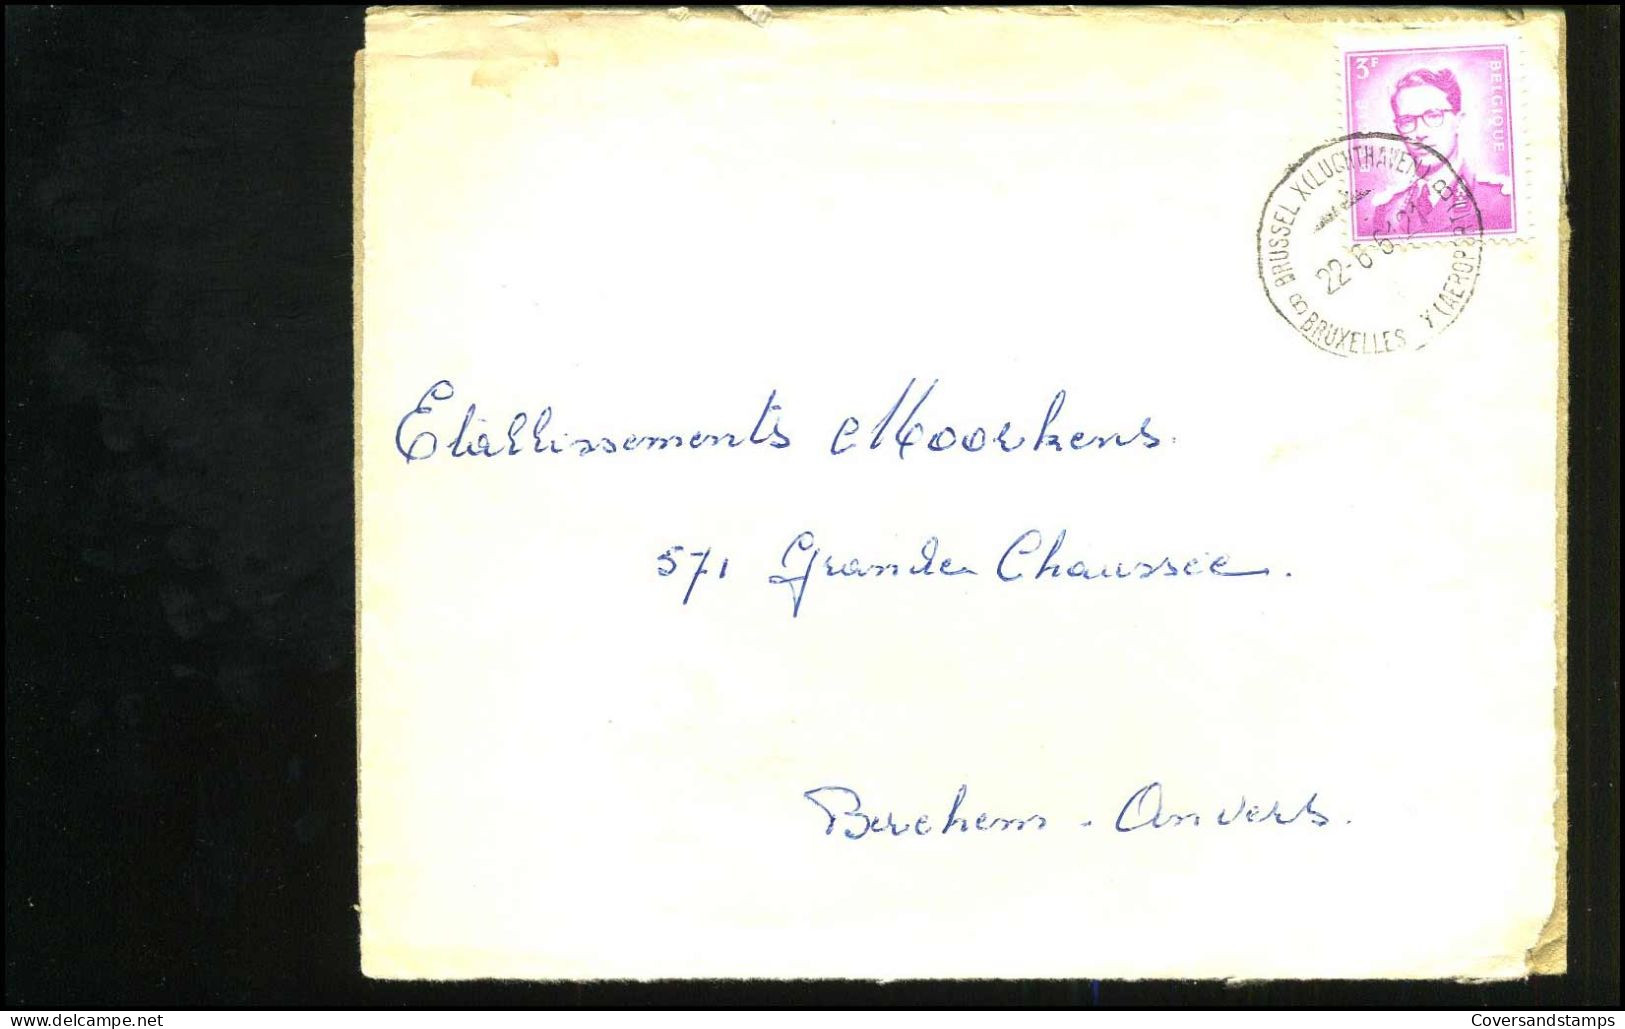 3F
BELGIQUE
BRUSSEL X (LUCHTHAVEN) B
B BRUXELLES Y (AEROPORT)
22-6-6
21
Etablissements Moorkens.
571 Grande Chaussée.
Berchem - Anvers.
www.delcampe.net
Coversandstamps